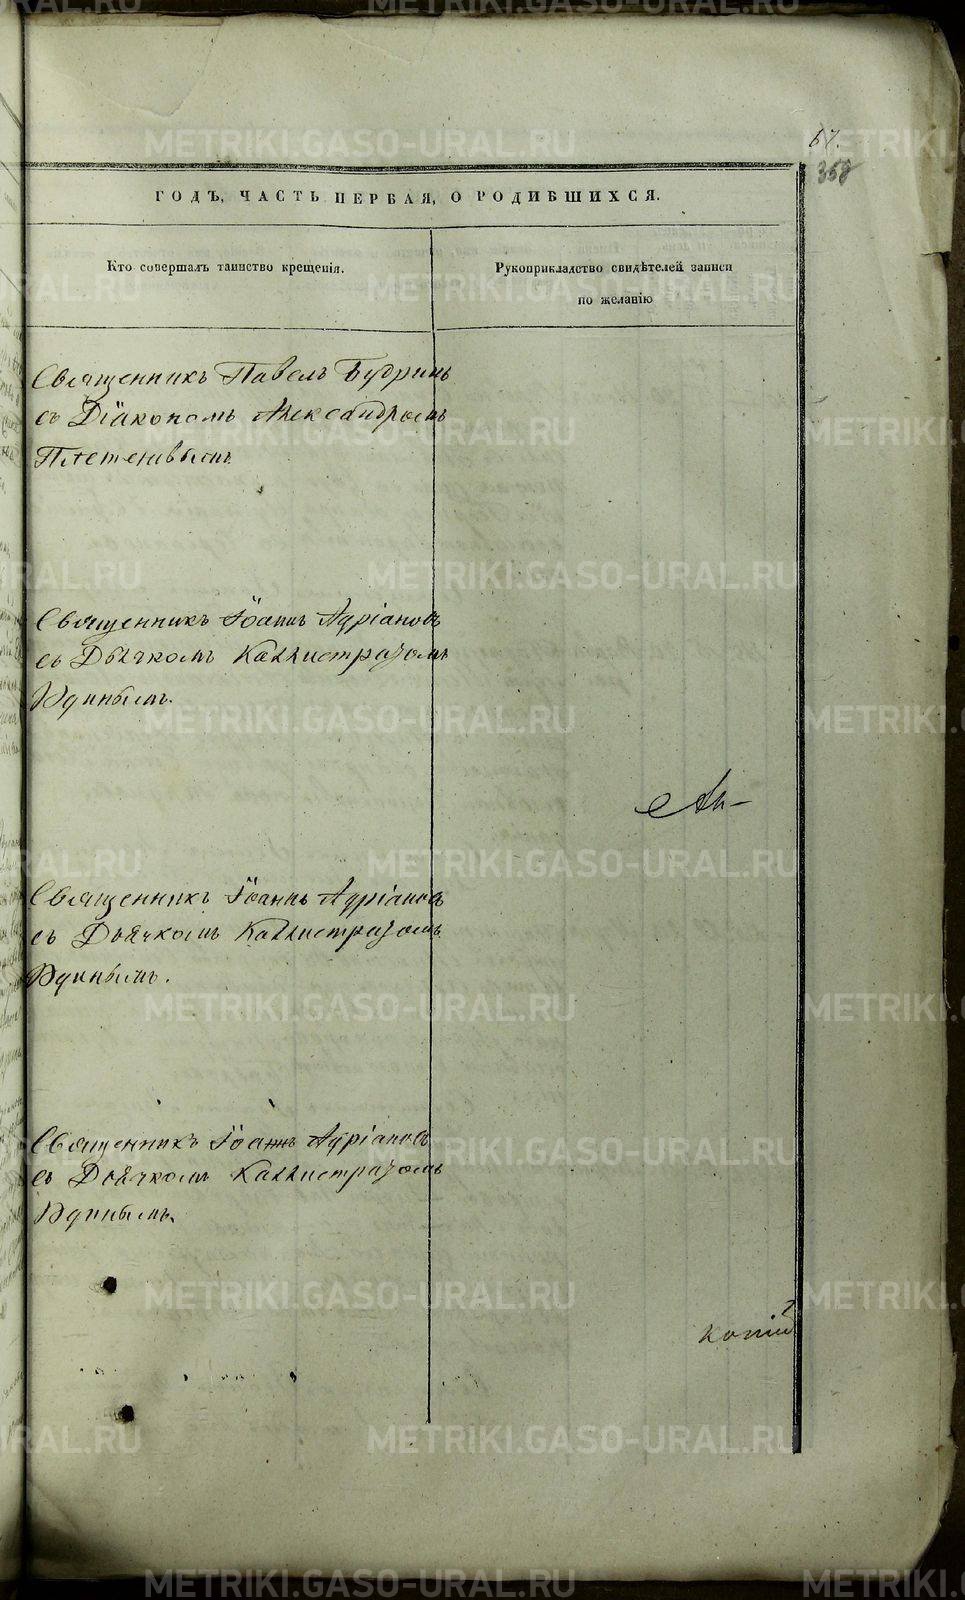 67.
358
ГОДЪ, ЧАСТЬ ПЕРВАЯ, О РОДИВШИХСЯ.
Кто совершалъ таинство крещенія.
Рукоприкладство свидѣтелей записи
по желанію
Священникъ Павелъ Будринъ
съ Діакономъ Александромъ
Плетеневымъ
Священникъ Іоаннъ Адріановъ
съ Дьячкомъ Каллистратомъ
Удинымъ.
Священникъ Іоаннъ Адріановъ
съ Дьячкомъ Каллистратомъ
Удинымъ.
Священникъ Іоаннъ Адріановъ
съ Дьячкомъ Каллистратомъ
Удинымъ.
METRIKI.GASO-URAL.RU